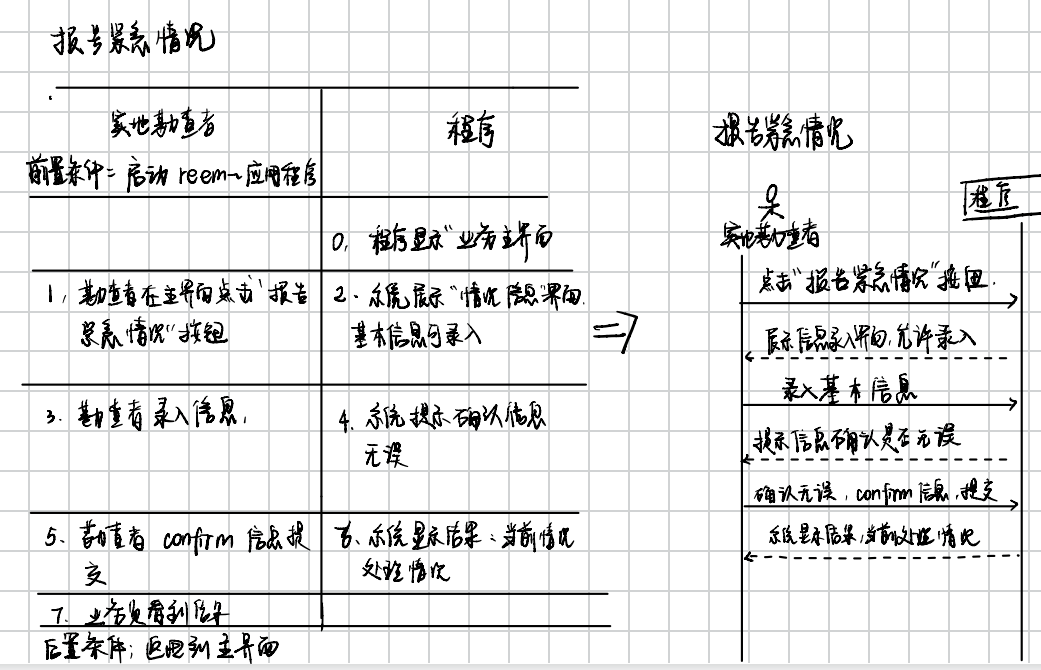 报号紧急情况
实地勘查者
程序
前置条件: 启动 reem~应用程序
0, 程序显示"业务主界面
1, 勘查者在主界面点击"报告
紧急情况"按钮
2. 系统展示"情况信息"界面.
基本信息可录入
3. 勘查者录入信息,
4. 系统提示确认信息
无误
5、勘查者 confirm 信息提
交
6、系统显示结果:当前情况
处理情况
7. 业务员看到结果
后置条件; 返回到主界面
报告紧急情况
程序
实地勘查者
点击"报告紧急情况"按钮.
展示信息录入界面,允许录入
录入基本信息
提示信息确认是否无误
确认无误, confirm 信息,提交
系统显示结果,当前处理情况